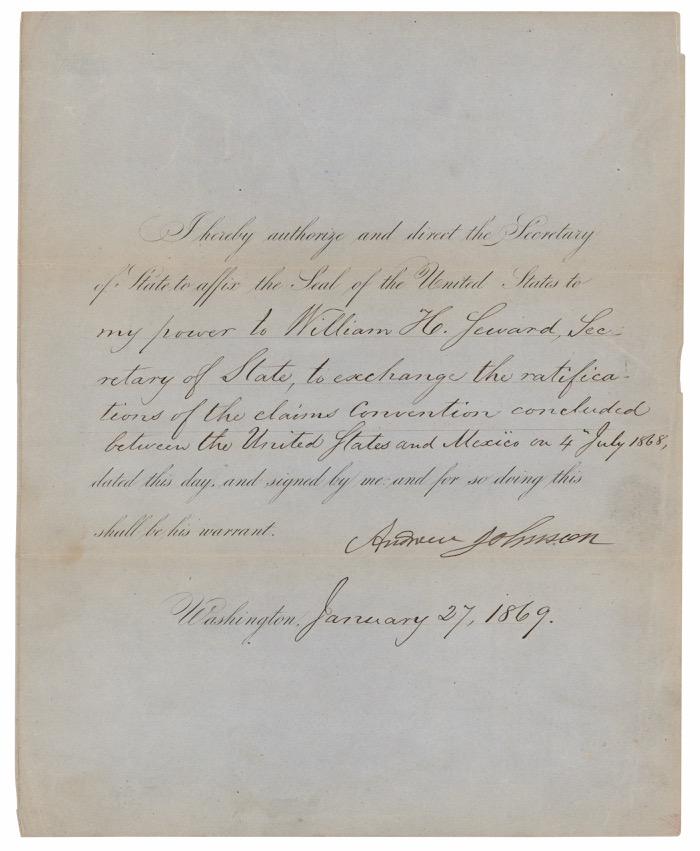 I hereby authorize and direct the Secretary
of State to affix the Seal of the United States to
my power to William H. Seward, Sec-
retary of State, to exchange the ratifica-
tions of the claims Convention concluded
between the United States and Mexico on 4" July 1868,
dated this day, and signed by me: and for so doing this
shall be his warrant.
Andrew Johnson
Washington, January 27, 1869.